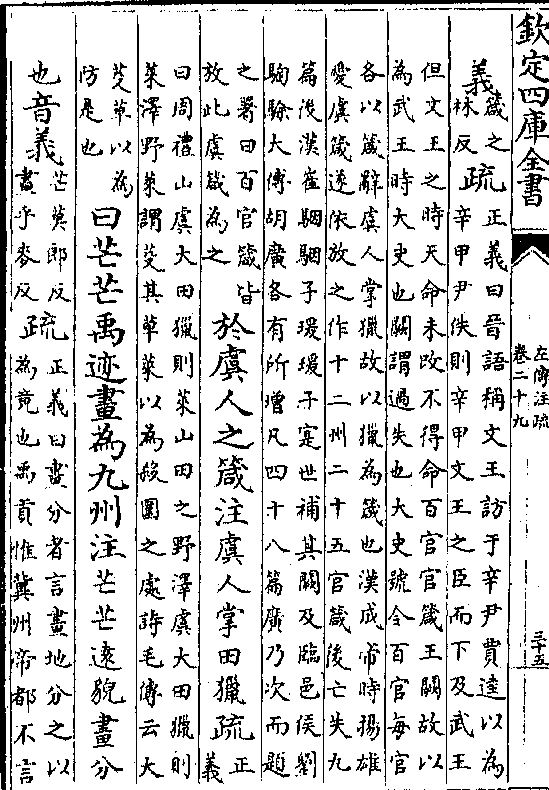 欽定四庫全書
左傳注疏
卷二十九
三十五
義
箴之
林反
疏
正義曰晉語稱文王訪于辛尹賈逵以為
辛甲尹佚則辛甲文王之臣而下及武王
但文王之時天命未改不得命百官官箴王闕故以
為武王時大史也闕謂過失也大史號令百官每官
各以箴辭虞人掌獵故以獵為箴也漢成帝時揚雄
愛虞箴遂依放之作十二州二十五官箴後亡失九
篇後漢崔駰駰子瑗瑗子寔世補其闕及臨邑侯劉
騊駼大傅胡廣各有所增凡四十八篇廣乃次而題
之署曰百官箴皆
放此虞箴為之
於虞人之箴注虞人掌田獵疏
正
義
曰周禮山虞大田獵則萊山田之野澤虞大田獵則
萊澤野萊謂芟其草萊以為殺圍之處詩毛傳云大
芟草以為
防是也
曰芒芒禹迹畫為九州注芒芒遠貌畫分
也音義
芒莫郎反
畫乎麥反
疏
正義曰畫分者言畫地分之以
為竟也禹貢惟冀州帝都不言